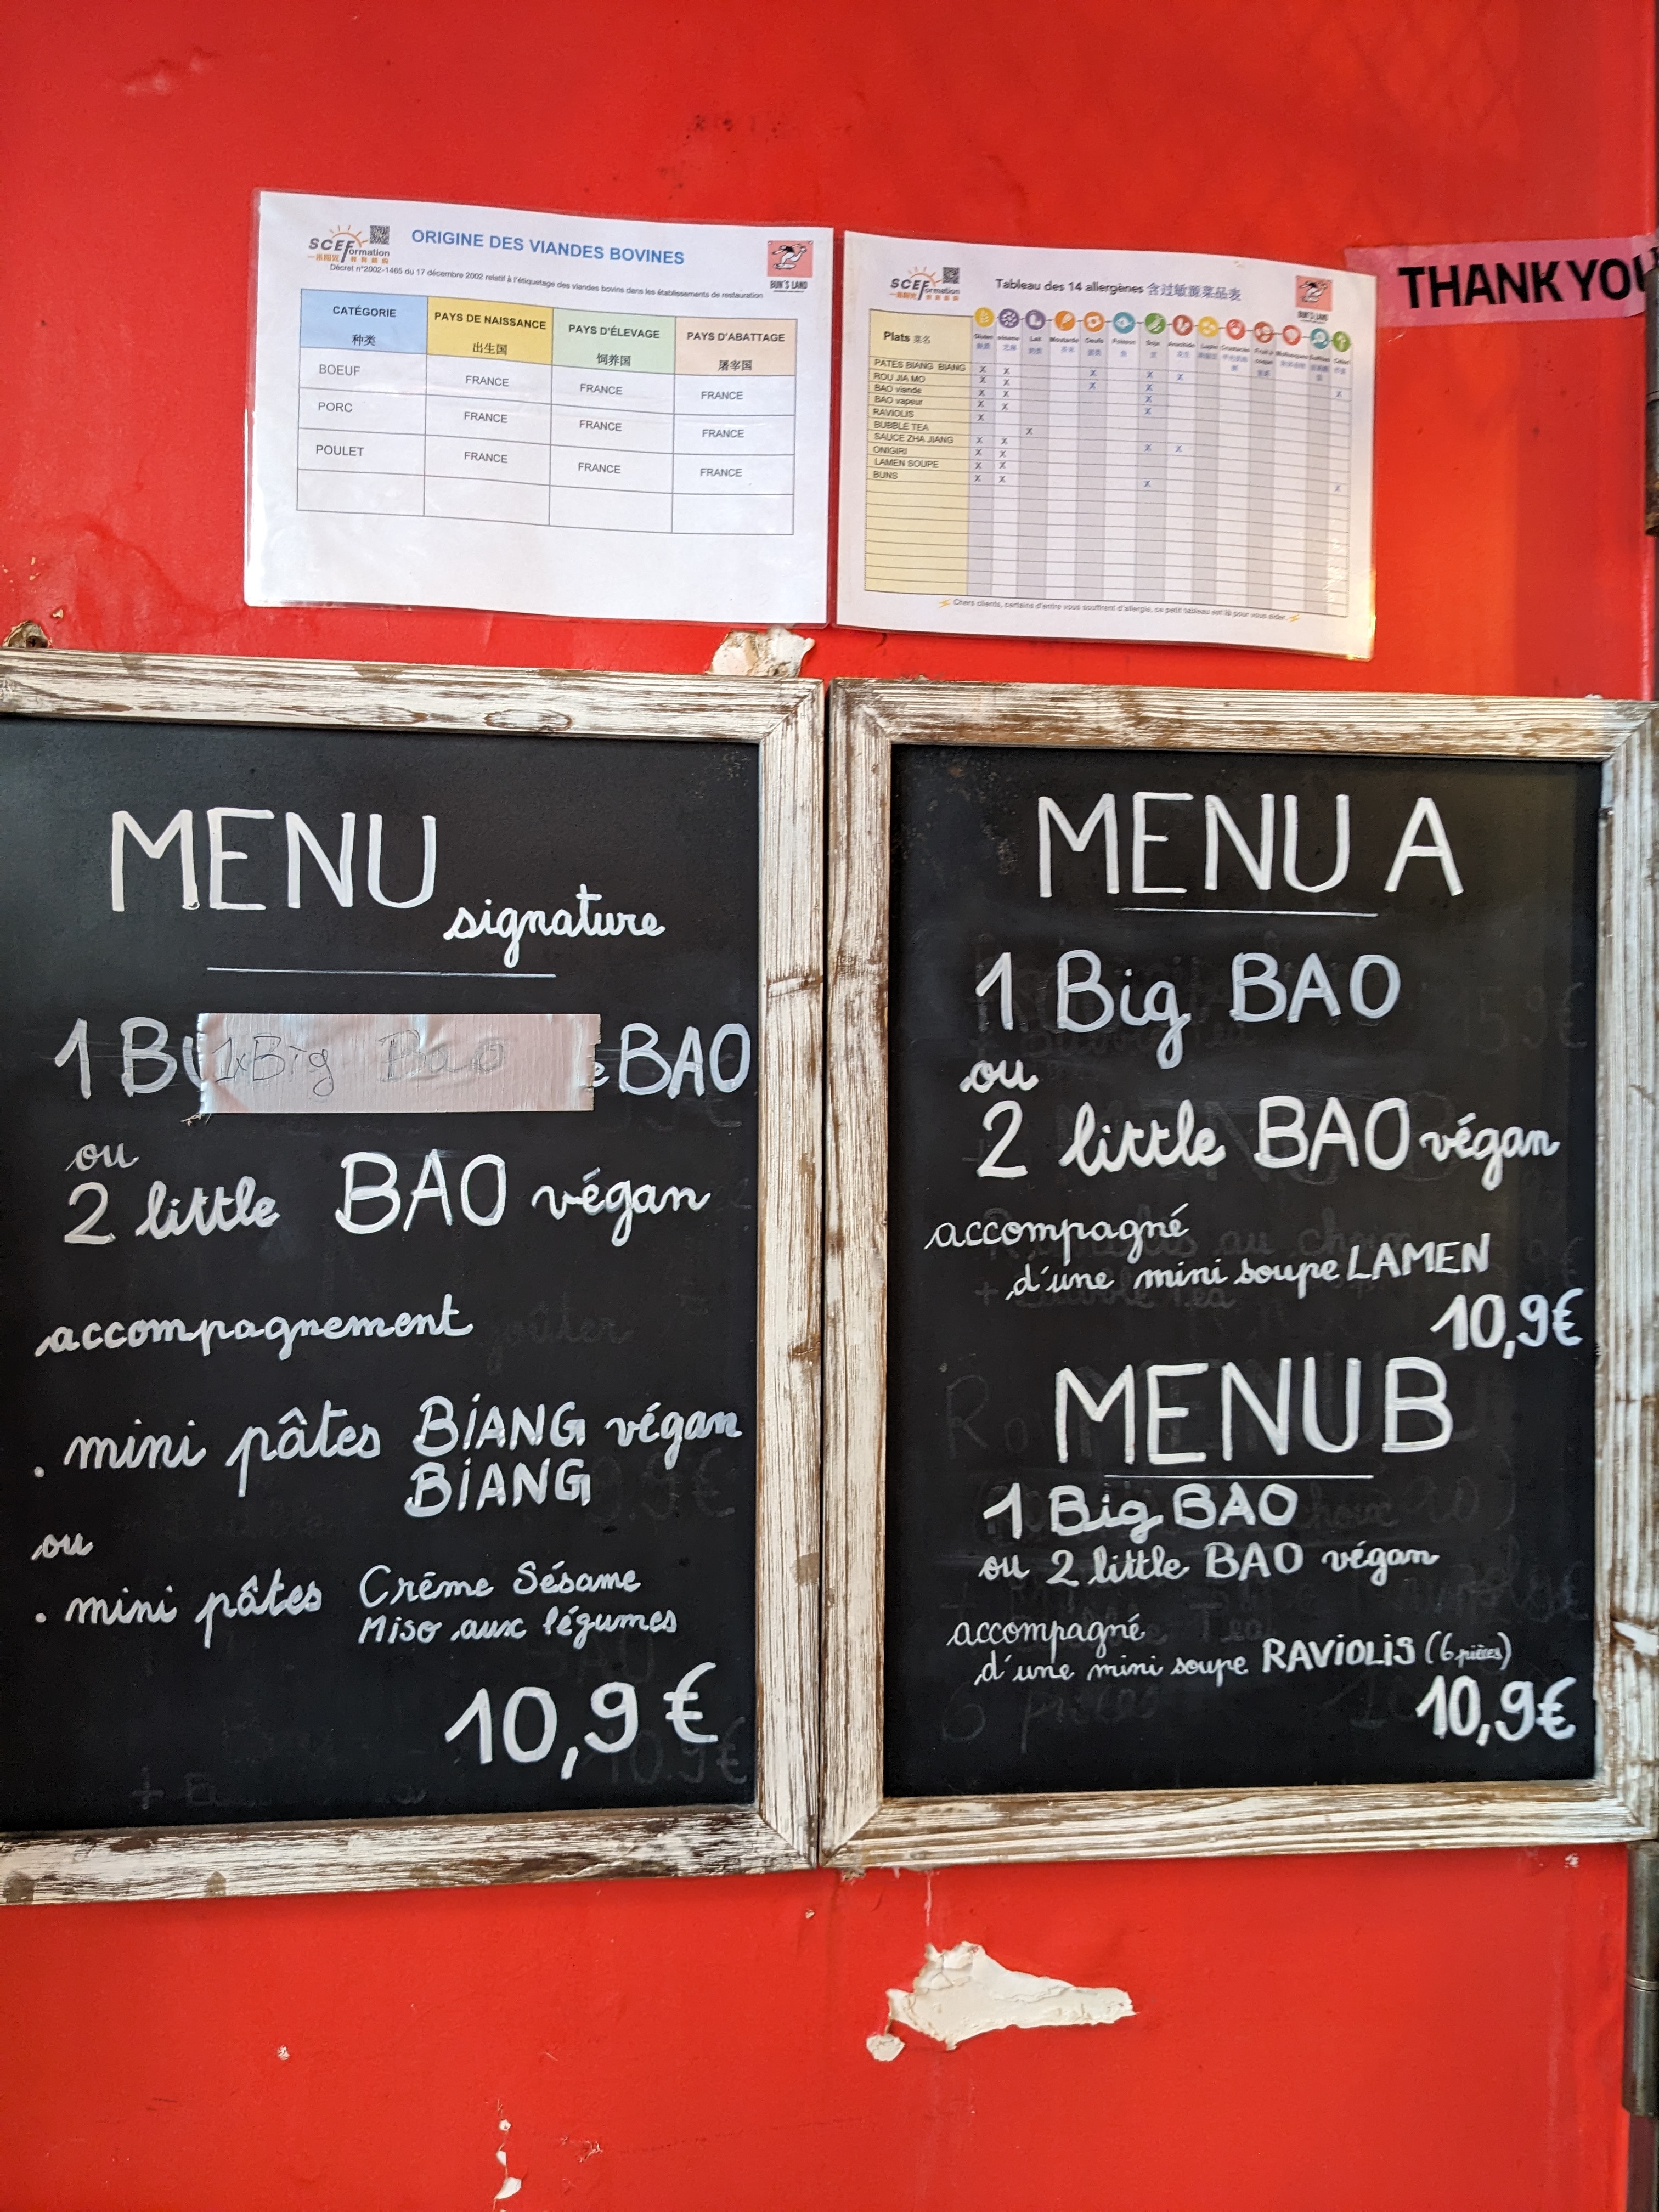 SCEFormation
ORIGINE DES VIANDES BOVINES
Décret n°2002-1465 du 17 décembre 2002 relatif à l'étiquetage des viandes bovins dans les établissements de restauration
BUN'S LAND
CATÉGORIE PAYS DE NAISSANCE PAYS D'ÉLEVAGE PAYS D'ABATTAGE
种类 出生国 饲养国 屠宰国
BOEUF FRANCE FRANCE FRANCE
PORC FRANCE FRANCE FRANCE
POULET FRANCE FRANCE FRANCE
SCEFormation
Tableau des 14 allergènes 含过敏源菜品表
BUN'S LAND
Plats 菜名 Gluten Sésame Lait Moutarde Oeufs Poisson Soja Arachide Lupin Crustacés Fruit à coque Mollusques Sulfites Céleri
PATES BIANG BIANG
ROU JIA MO
BAO viande
BAO vapeur
RAVIOLIS
BUBBLE TEA
SAUCE ZHA JIANG
ONIGIRI
LAMEN SOUPE
BUNS
Chers clients, certains d'entre vous souffrent d'allergie, ce petit tableau est là pour vous aider.
THANK YOU
MENU
signature
1 B 1x Big Bao e BAO
ou
2 little BAO végan
accompagnement
. mini pâtes BIANG végan
BIANG
ou
. mini pâtes Crème Sésame
Miso aux légumes
10,9€
MENU A
1 Big BAO
ou
2 little BAO végan
accompagné
d'une mini soupe LAMEN
10,9€
MENU B
1 Big BAO
ou 2 little BAO végan
accompagné
d'une mini soupe RAVIOLIS (6 pièces)
10,9€